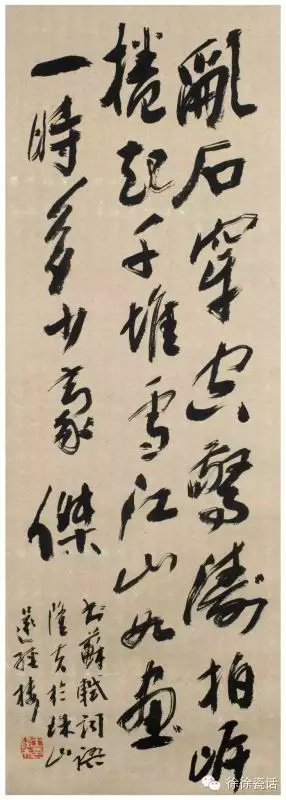 亂石穿空驚濤拍岸
捲起千堆雪江山如畫
一時多少豪傑
书蘇軾詞語
於珠山
徐徐瓷话